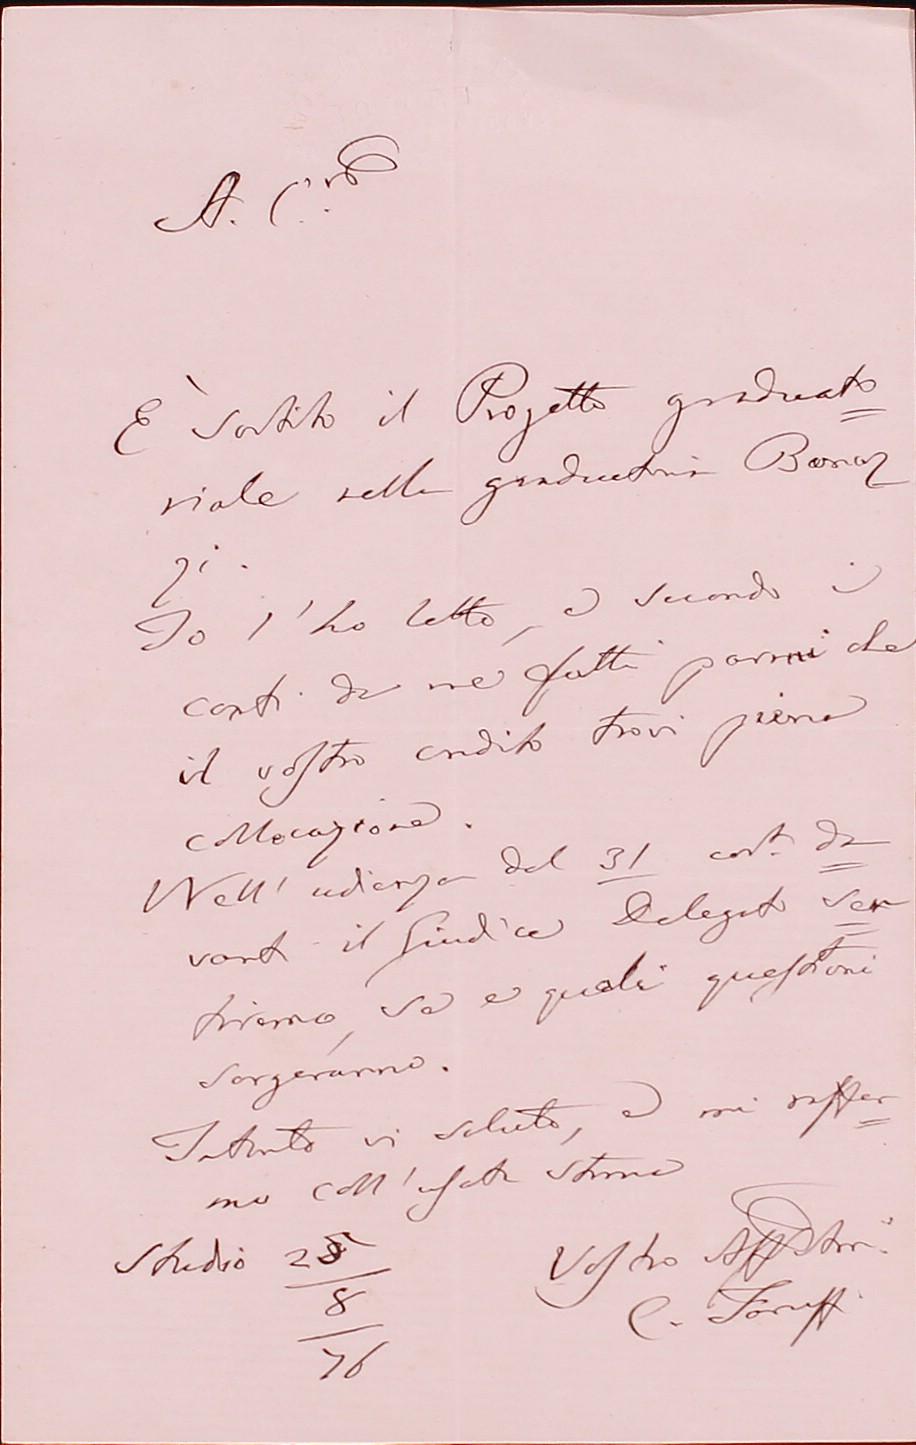 A. C.ro
È sortito il Progetto graduato=
riale nella graduatoria Bonaz
zi.
Io l'ho letto, e secondo i
conti da me fatti parmi che
il vostro credito trovi piena
collocazione.
Nell'udienza del 31 corr. da=
vanti il Giudice Delegato sen=
tiremo, se e quali questioni
sorgeranno.
Intanto vi saluto, e mi raffer=
mo coll'usata stima
Studio 25
8
76
Vostro Aff
C.